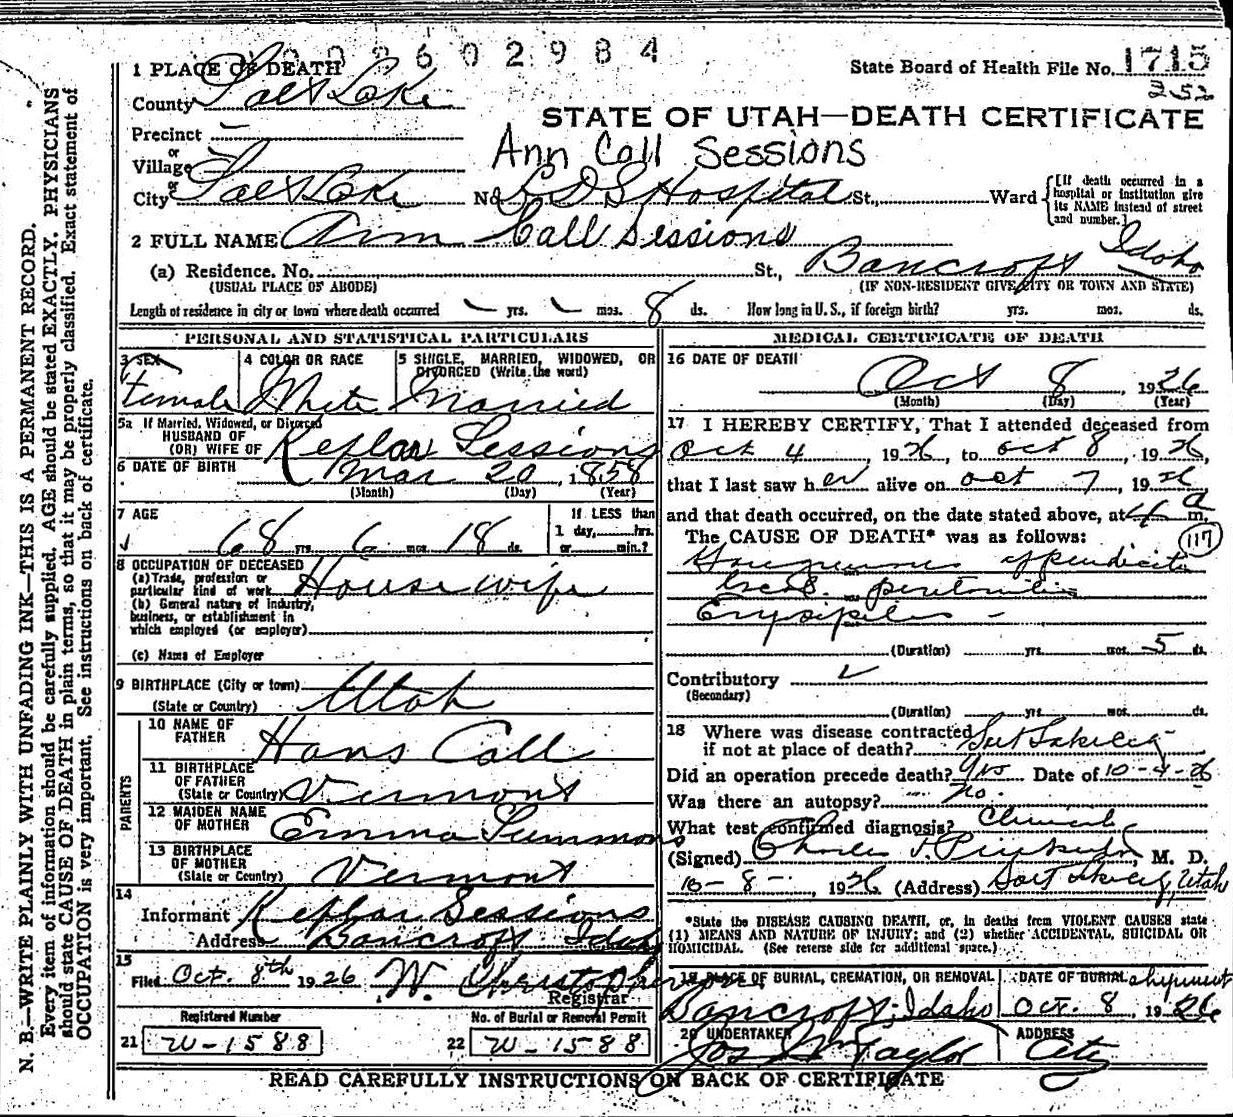 002602984
1 PLACE OF DEATH
State Board of Health File No. 1715
252
County Salt Lake
STATE OF UTAH—DEATH CERTIFICATE
Precinct
or
Ann Call Sessions
Village
or
City Salt Lake No. LDS Hospital St., Ward
[If death occurred in a hospital or institution give its NAME instead of street and number.]
2 FULL NAME Ann Call Sessions
(a) Residence. No. St., Bancroft Idaho
(USUAL PLACE OF ABODE) (IF NON-RESIDENT GIVE CITY OR TOWN AND STATE)
Length of residence in city or town where death occurred yrs. mos. 8 ds. How long in U. S., if foreign birth? yrs. mos. ds.
PERSONAL AND STATISTICAL PARTICULARS
3 SEX 4 COLOR OR RACE 5 SINGLE, MARRIED, WIDOWED, OR DIVORCED (Write the word)
Female White Married
5a If Married, Widowed, or Divorced
HUSBAND OF
(OR) WIFE OF Keplar Sessions
6 DATE OF BIRTH Mar 20, 1858
(Month) (Day) (Year)
7 AGE If LESS than
1 day, hrs.
68 yrs. 6 mos. 18 ds. or min.?
8 OCCUPATION OF DECEASED
(a) Trade, profession or
particular kind of work Housewife
(b) General nature of Industry,
business, or establishment in
which employed (or employer)
(c) Name of Employer
9 BIRTHPLACE (City or town)
(State or Country) Utah
PARENTS
10 NAME OF
FATHER Hans Call
11 BIRTHPLACE
OF FATHER
(State or Country) Vermont
12 MAIDEN NAME
OF MOTHER Emma Summons
13 BIRTHPLACE
OF MOTHER
(State or Country) Vermont
14
Informant Keplar Sessions
Address Bancroft Idah
15
Filed Oct. 8th 1926 W. Christopherson
Registrar
Registered Number No. of Burial or Removal Permit
21 W-1588 22 W-1588
MEDICAL CERTIFICATE OF DEATH
16 DATE OF DEATH
Oct 8, 1926
(Month) (Day) (Year)
17 I HEREBY CERTIFY, That I attended deceased from
Oct 4, 1926, to Oct 8, 1926,
that I last saw her alive on Oct 7, 1926
and that death occurred, on the date stated above, at 4 a m.
The CAUSE OF DEATH* was as follows: 117
appendicitis
peritonitis
Erysipelas
(Duration) yrs. mos. 5 ds.
Contributory
(Secondary)
(Duration) yrs. mos. ds.
18 Where was disease contracted
if not at place of death? Salt Lake City
Did an operation precede death? Yes Date of 10-4-26
Was there an autopsy? No.
What test confirmed diagnosis? Clinical
(Signed) Charles M. D.
10-8-, 1926 (Address) Salt Lake City, Utah
*State the DISEASE CAUSING DEATH, or, in deaths from VIOLENT CAUSES state
(1) MEANS AND NATURE OF INJURY; and (2) whether ACCIDENTAL, SUICIDAL OR
HOMICIDAL. (See reverse side for additional space.)
19 PLACE OF BURIAL, CREMATION, OR REMOVAL DATE OF BURIAL shipment
Bancroft, Idaho Oct. 8, 1926
20 UNDERTAKER ADDRESS
Jos Wm Taylor City
READ CAREFULLY INSTRUCTIONS ON BACK OF CERTIFICATE
N. B.—WRITE PLAINLY WITH UNFADING INK—THIS IS A PERMANENT RECORD.
Every item of information should be carefully supplied. AGE should be stated EXACTLY. PHYSICIANS
should state CAUSE OF DEATH in plain terms, so that it may be properly classified. Exact statement of
OCCUPATION is very important. See instructions on back of certificate.